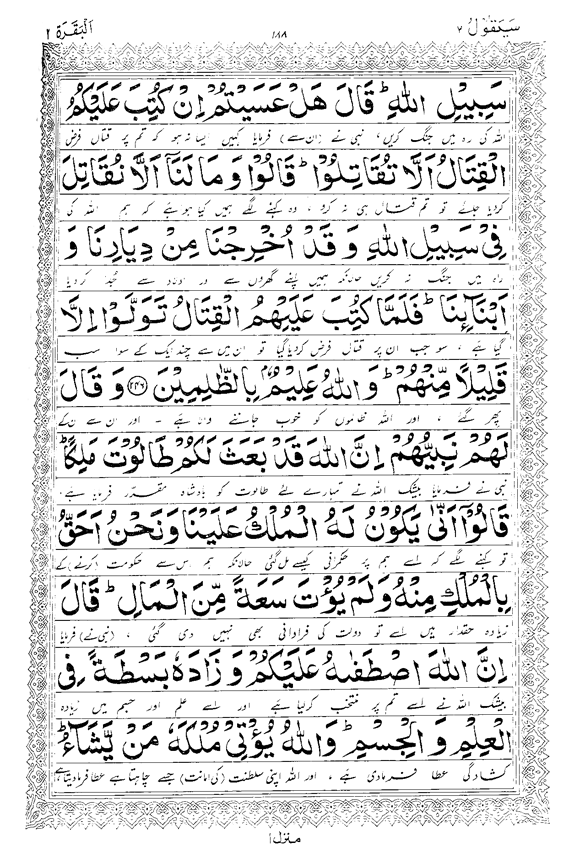 سَيَقُوْلُ ٢ ١٨٨ اَلْبَقَرَة ٢
سَبِيْلِ اللّٰهِ ؕ قَالَ هَلْ عَسَيْتُمْ اِنْ كُتِبَ عَلَيْكُمُ
اللہ کی راہ میں جنگ کریں، نبی نے (ان سے) فرمایا: کہیں ایسا نہ ہو کہ تم پر قتال فرض
الْقِتَالُ اَلَّا تُقَاتِلُوْا ؕ قَالُوْا وَ مَا لَنَاۤ اَلَّا نُقَاتِلَ
کردیا جائے تو تم قتال ہی نہ کرو، وہ کہنے لگے ہمیں کیا ہوا ہے کہ ہم اللہ کی
فِيْ سَبِيْلِ اللّٰهِ وَ قَدْ اُخْرِجْنَا مِنْ دِيَارِنَا وَ
راہ میں جنگ نہ کریں حالانکہ ہمیں اپنے گھروں سے اور اولاد سے جُدا کر دیا
اَبْنَآئِنَا ؕ فَلَمَّا كُتِبَ عَلَيْهِمُ الْقِتَالُ تَوَلَّوْا اِلَّا
گیا ہے، سو جب ان پر قتال فرض کردیا گیا تو ان میں سے چند ایک کے سوا سب
قَلِيْلًا مِّنْهُمْ ؕ وَ اللّٰهُ عَلِيْمٌۢ بِالظّٰلِمِيْنَ ﴿٢٤٦﴾ وَ قَالَ
پھر گئے، اور اللہ ظالموں کو خوب جاننے والا ہے - اور ان سے ان کے
لَهُمْ نَبِيُّهُمْ اِنَّ اللّٰهَ قَدْ بَعَثَ لَكُمْ طَالُوْتَ مَلِكًا ؕ
نبی نے فرمایا بیشک اللہ نے تمہارے لئے طالوت کو بادشاہ مقرّر فرمایا ہے،
قَالُوْۤا اَنّٰى يَكُوْنُ لَهُ الْمُلْكُ عَلَيْنَا وَ نَحْنُ اَحَقُّ
تو کہنے لگے کہ اسے ہم پر حکمرانی کیسے مل گئی حالانکہ ہم اس سے حکومت (کرنے) کے
بِالْمُلْكِ مِنْهُ وَ لَمْ يُؤْتَ سَعَةً مِّنَ الْمَالِ ؕ قَالَ
زیادہ حقدار ہیں اسے تو دولت کی فراوانی بھی نہیں دی گئی، (نبی نے) فرمایا
اِنَّ اللّٰهَ اصْطَفٰىهُ عَلَيْكُمْ وَ زَادَهٗ بَسْطَةً فِي
بیشک اللہ نے اسے تم پر منتخب کرلیا ہے اور اسے علم اور جسم میں زیادہ
الْعِلْمِ وَ الْجِسْمِ ؕ وَ اللّٰهُ يُؤْتِيْ مُلْكَهٗ مَنْ يَّشَآءُ ؕ
کشادگی عطا فرمادی ہے، اور اللہ اپنی سلطنت (کی امانت) جسے چاہتا ہے عطا فرمادیتا ہے
منزل ١